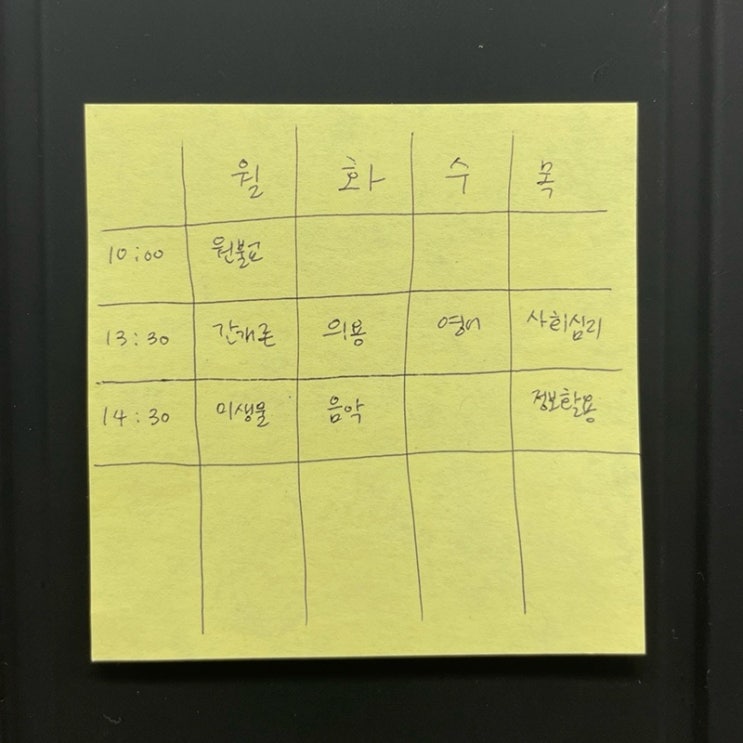 월 화 수 목
10:00 원불교
13:30 간개론 의용 영어 사회심리
14:30 미생물 음악 정보활용